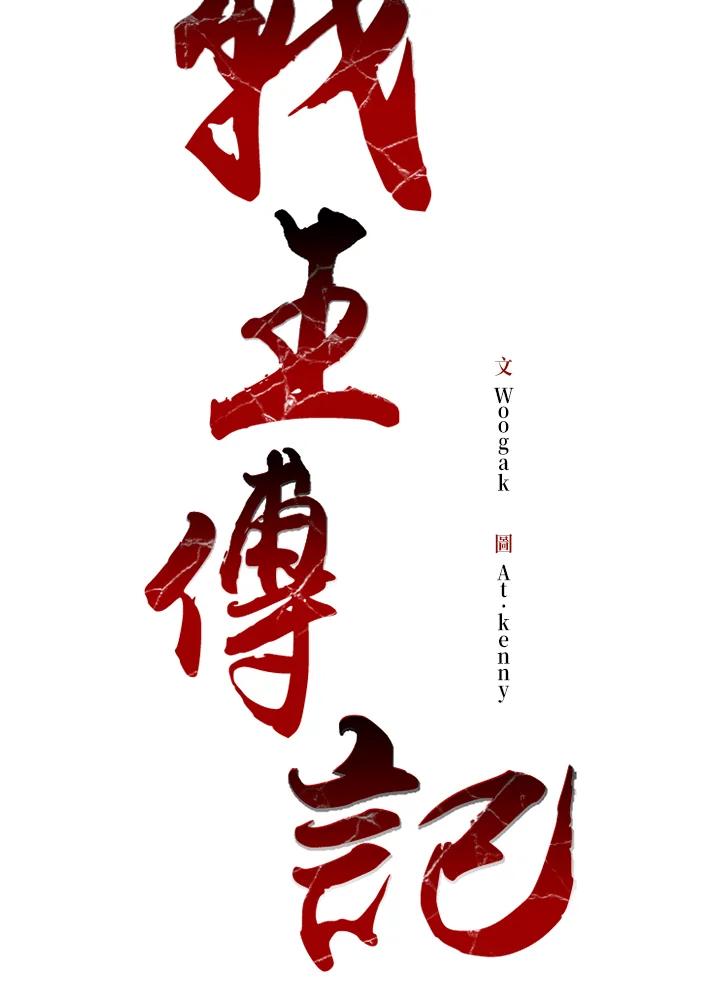 戰王傳記
文 Woogak
圖 At·kenny